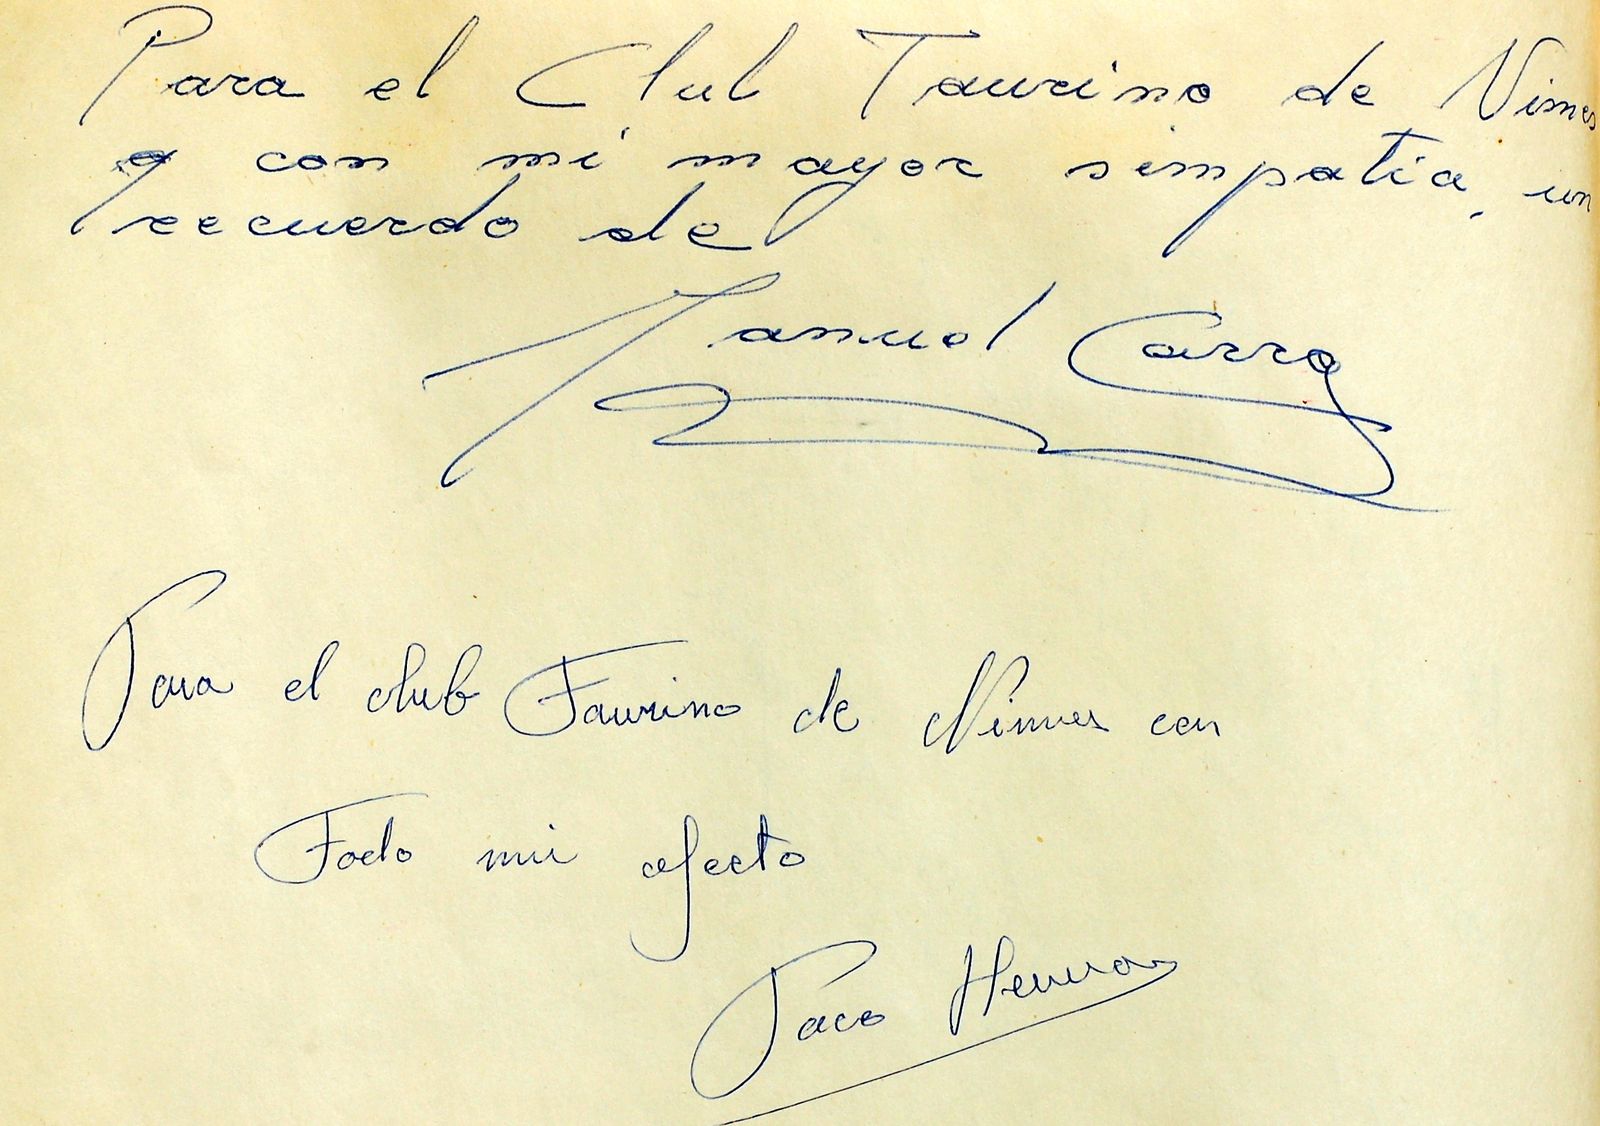 Para el Club Taurino de Nimes
y con mi mayor simpatia, un
recuerdo de
Manuel Carra
Para el club Taurino de Nimes con
Todo mi afecto
Paco Herrera